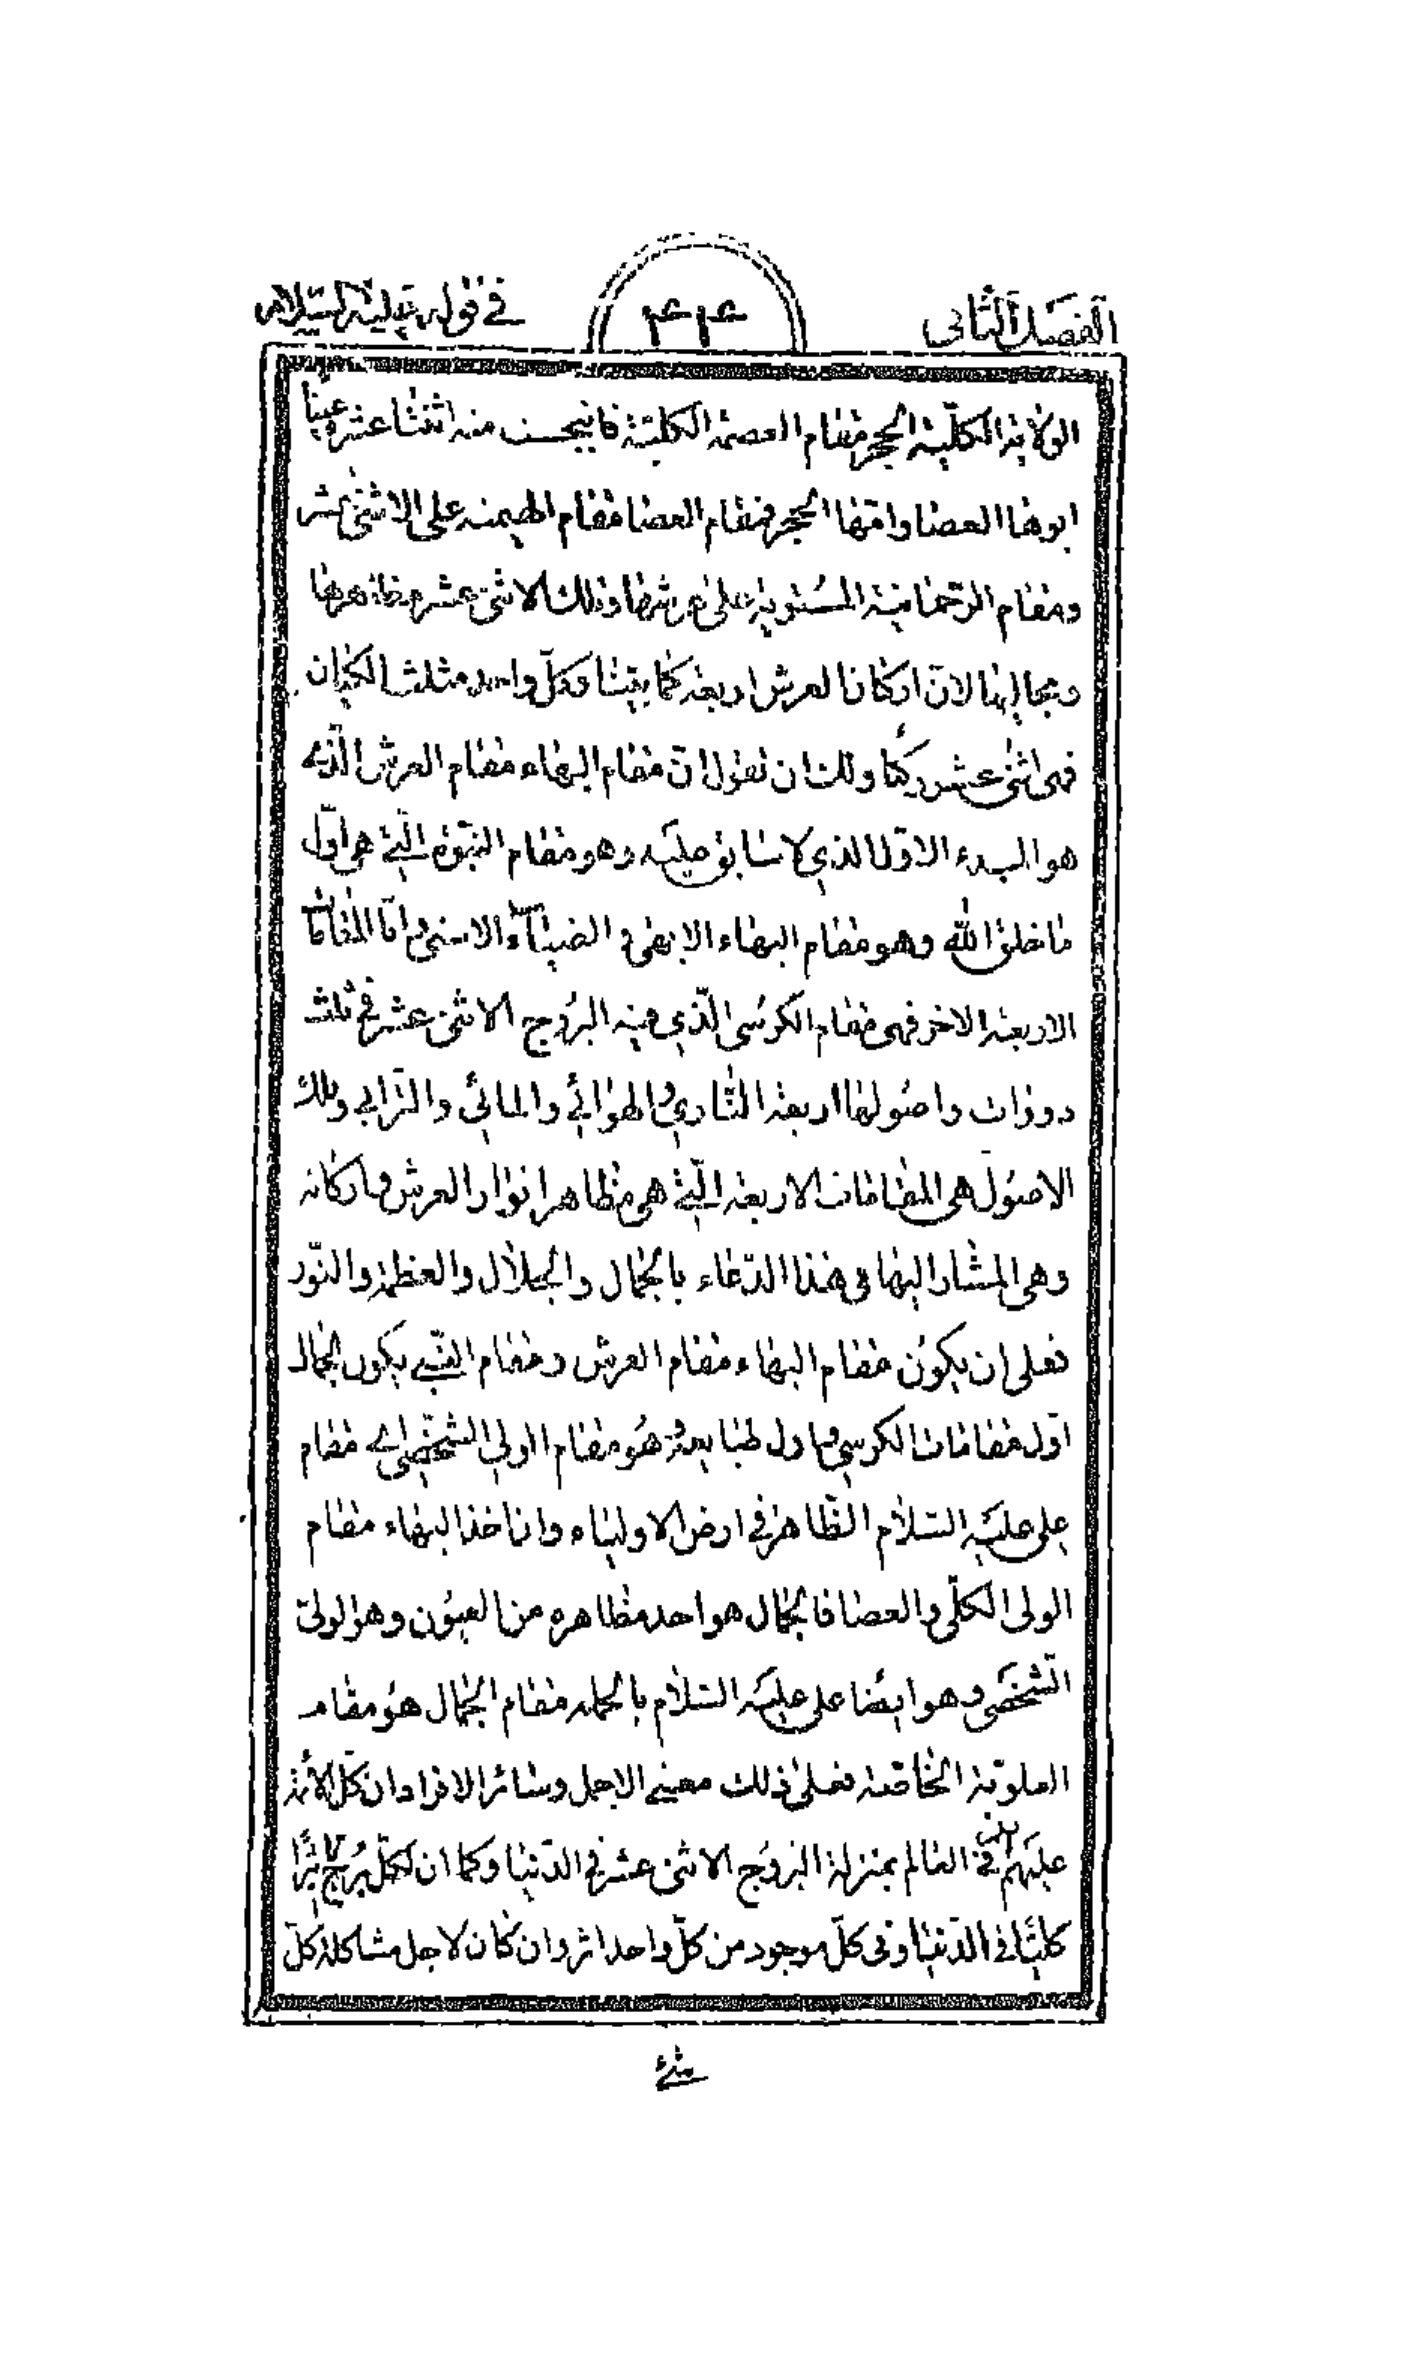 الفصل الثانی
۴۱۴
في قوله عليه السلام
الولاية الكلّية الحجر مقام العصمة الكلّية فانبجست منه اثنتا عشرة عيناً
ابوها العصا وامّها الحجر فمقام العصا مقام المهيمنه على الاثنى عشر
ومقام الرّحمانيّة المستوية على عرشها وذلك الاثنى عشر مظاهرها
ومجاليها لانّ اركان العرش اربعة كما بيّنا وكلّ واحد مثلث الكيان
فهى اثنى عشر ركنا ولك ان تقول انّ مقام البهاء مقام العرش الّذى
هو البدء الاوّل الذي لا سابق عليه وهو مقام النبوّة الّتي هى اوّل
ما خلق الله وهو مقام البهاء الابهى والضياء الاسنى وامّا المقامات
الاربعة الاخر فهى مقام الكرسى الّذي فيه البروج الاثنى عشر في ثلث
دورات واصولها اربعة النّاري والهوائي والمائي والترابي وتلك
الاصول هى المقامات الاربعة الّتي هى مظاهر انوار العرش واركانه
وهى المشار اليها فى هذا الدّعاء بالجمال والجلال والعظمة والنّور
فعلى ان يكون مقام البهاء مقام العرش ومقام النّبي يكون الجمال
اوّل مقامات الكرسي واول طبايعه وهو مقام الولي الشخصي اي مقام
علي عليه السلام الظّاهر في ارض الاولياء وان اخذ البهاء مقام
الولى الكلّي والعصا فالجمال هو احد مظاهره من العيون وهو الولىّ
الشخصى وهو ايضا على عليه السلام بالجمله مقام الجمال هو مقام
العلويّة الخاصّة فعلى ذلك معنى الاجمل وسائر الافراد ان كلّ الائمّة
عليهم في العالم بمنزلة البروج الاثنى عشر في الدّنيا وكما ان لكلّ برج اثراً
كليّاً في الدّنيا وفى كلّ موجود من كلّ واحد اثر وان كان لاجل مشاكلة كلّ
شئ